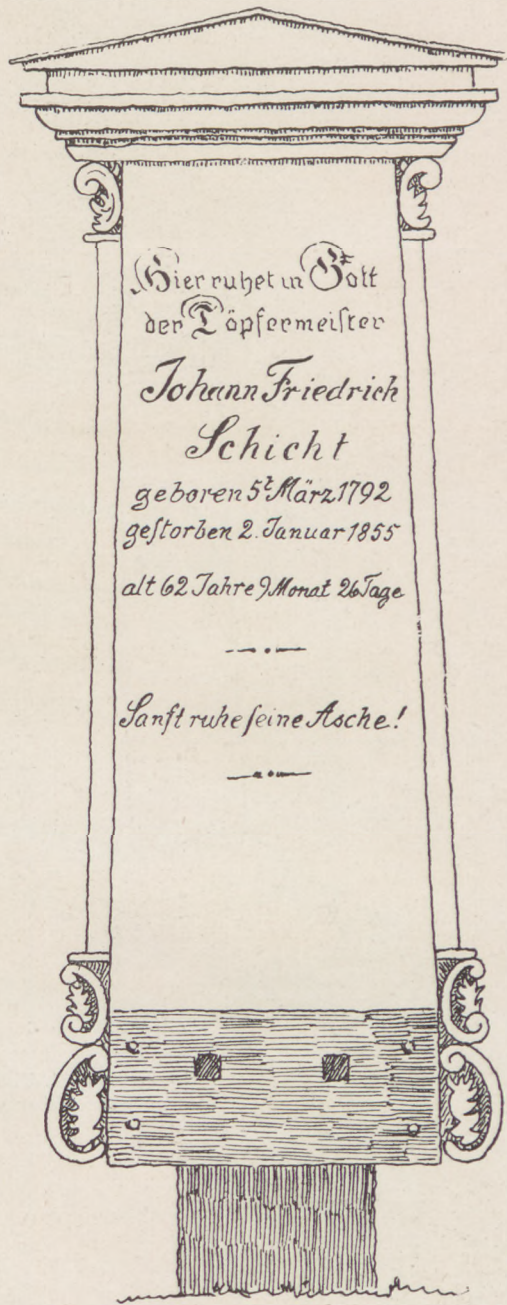 Hier ruhet in Gott
der Töpfermeiſter
Johann Friedrich
Schicht
geboren 5t März 1792
geſtorben 2. Januar 1855
alt 62 Jahre 9 Monat 26 Tage
Sanft ruhe ſeine Asche!